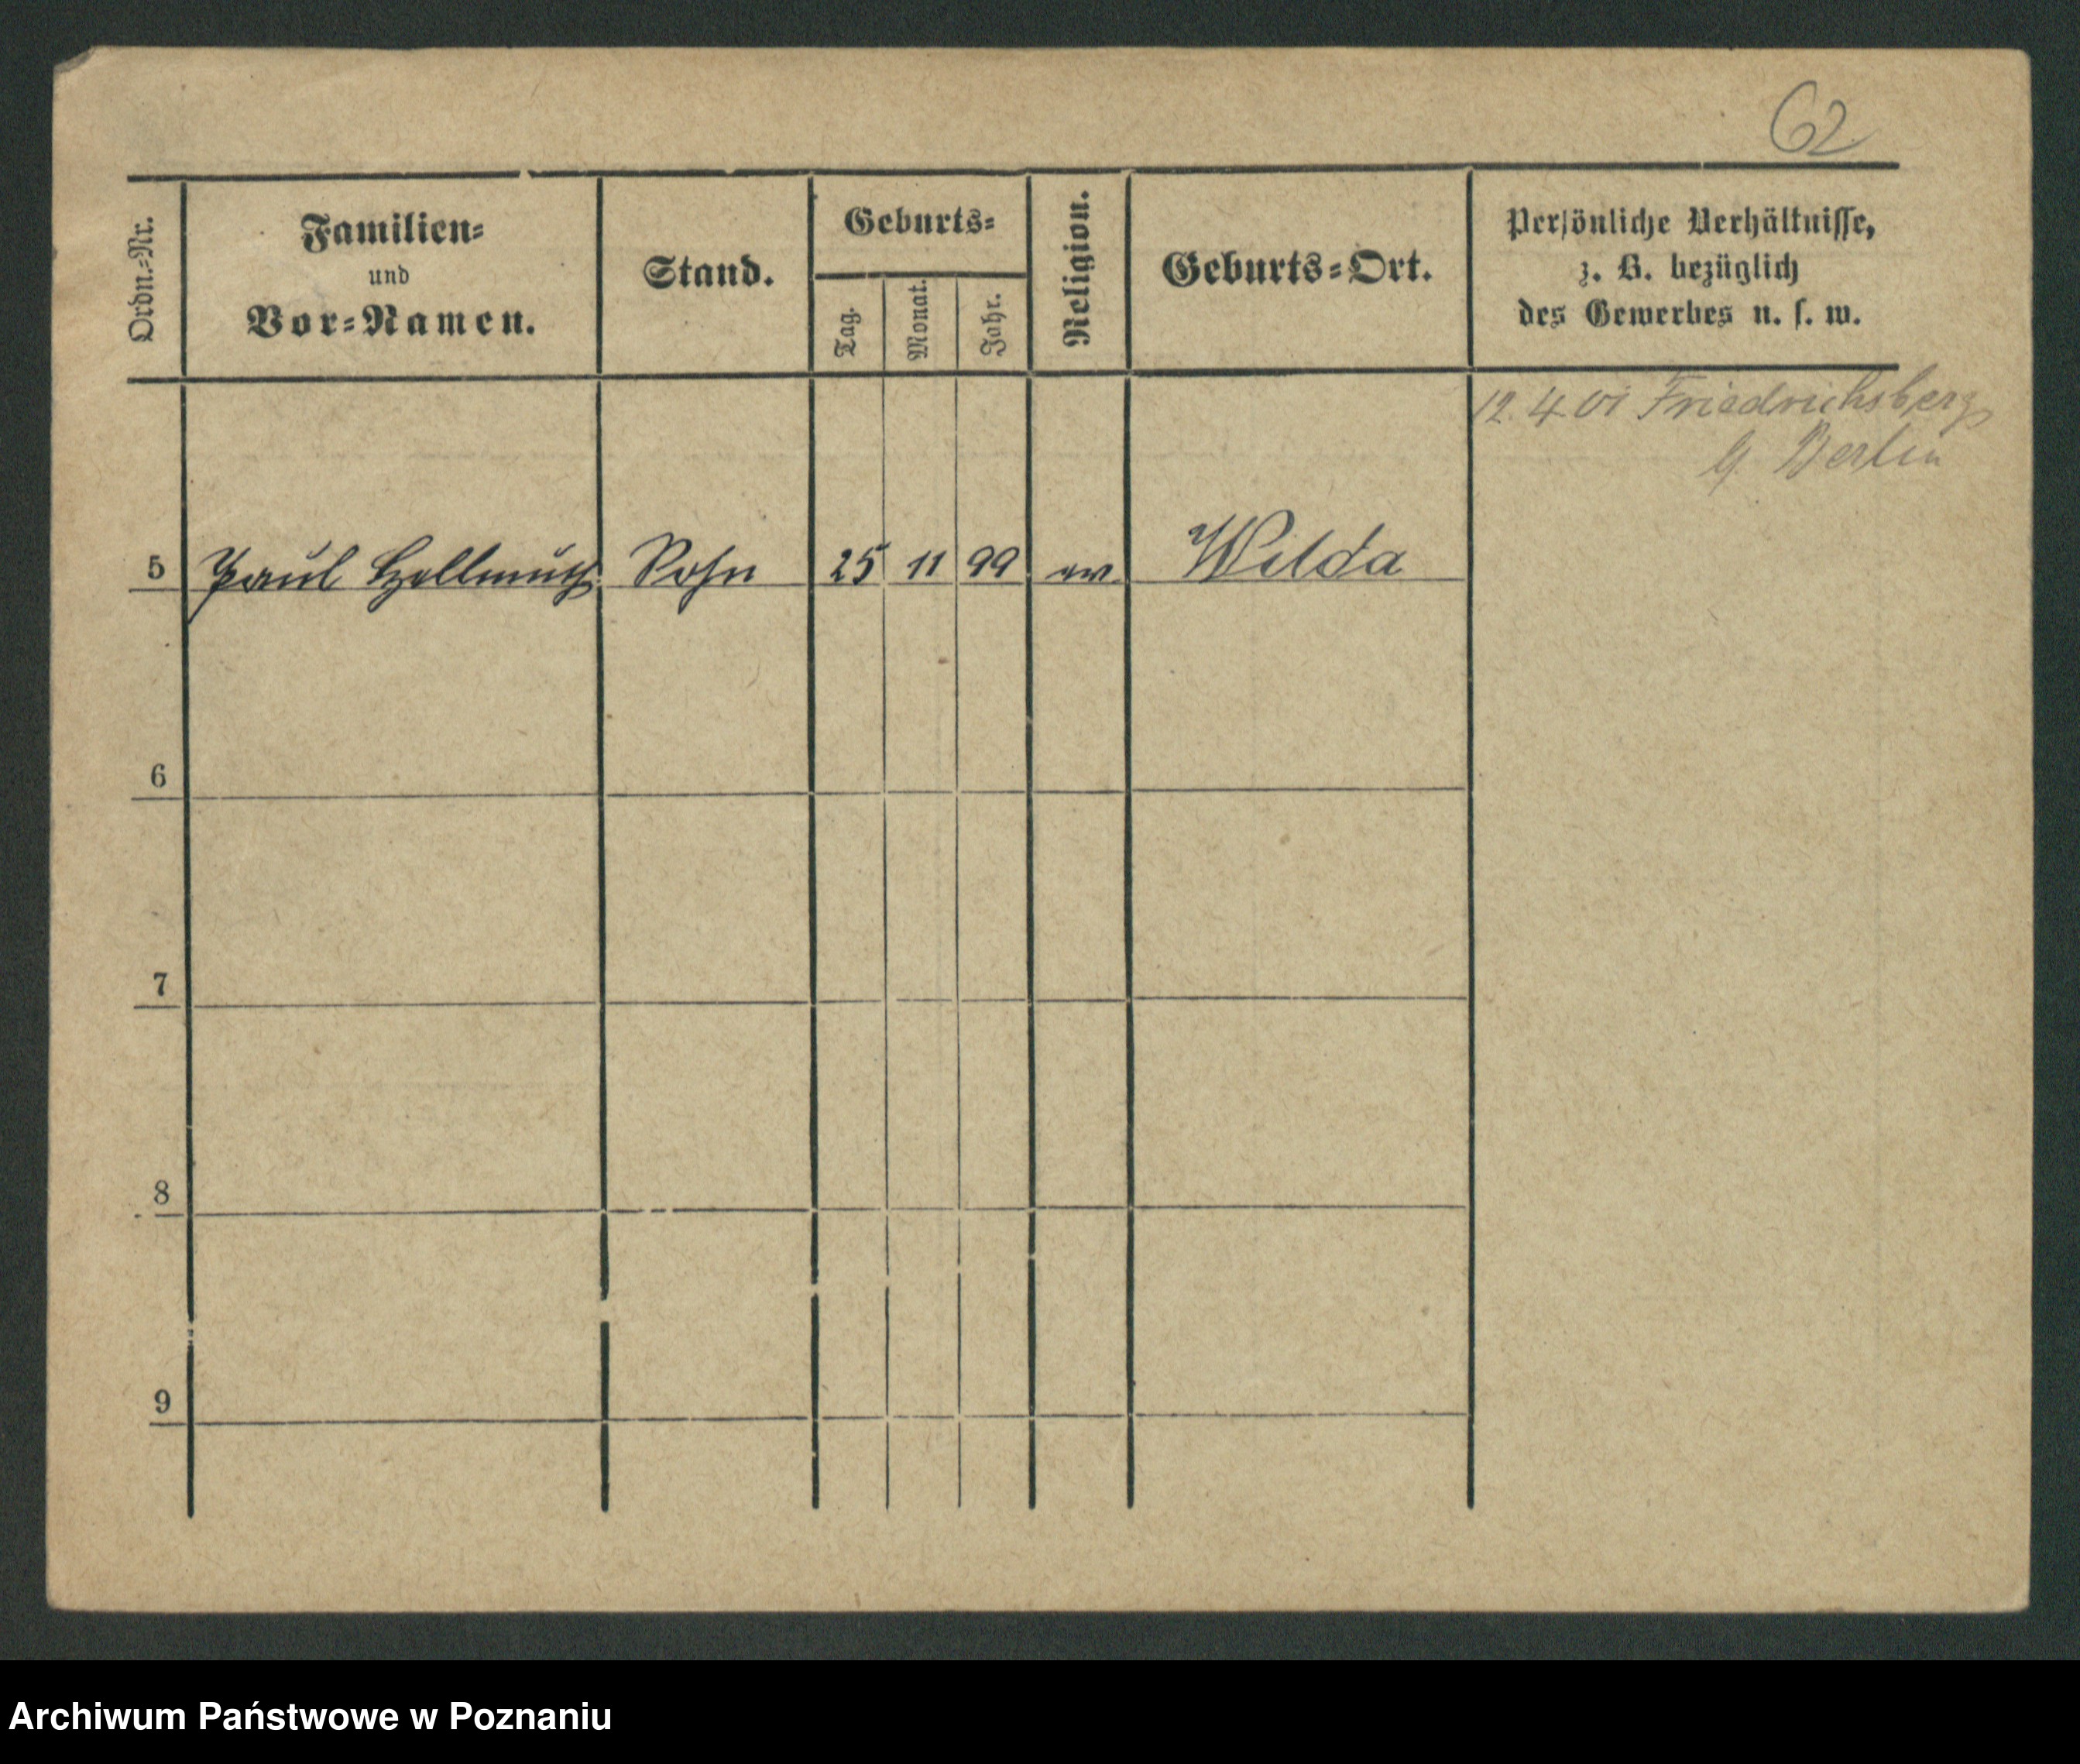 62
Ordn.=Nr.
Familien=
und
Vor=Namen.
Stand.
Geburts=
Tag.
Monat.
Jahr.
Religion.
Geburts=Ort.
Persönliche Verhältnisse,
z. B. bezüglich
des Gewerbes u. s. w.
12. 4. 01 Friedrichsberg
b. Berlin
5 Paul Hellmuth Sohn 25 11 99 ev. Wilda
6
7
8
9
Archiwum Państwowe w Poznaniu